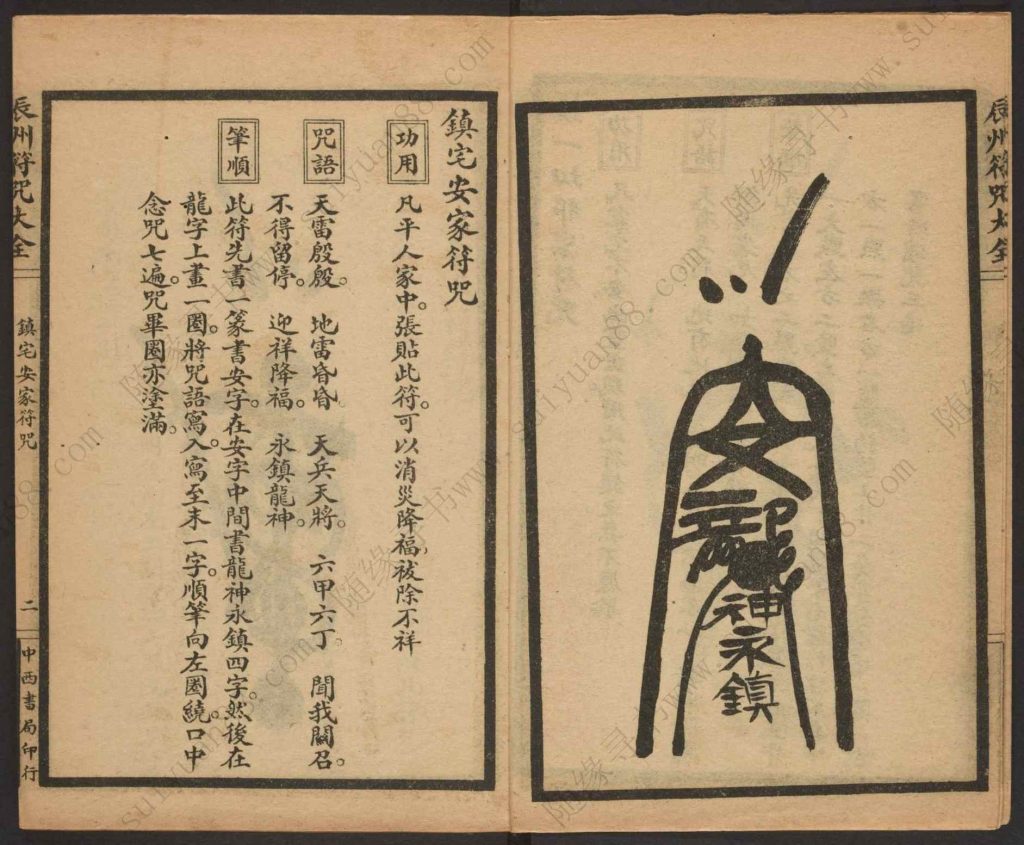 辰州符咒大全
安
龍
神
永
鎮
鎮宅安家符咒
功用
凡平人家中。張貼此符。可以消災降福,祓除不祥
咒語
天雷殷殷。 地雷昏昏 天兵天將。 六甲六丁。 聞我關召。
不得留停。 迎祥降福。 永鎮龍神。
筆順
此符先書一篆書安字。在安字中間書龍神永鎮四字。然後在
龍字上畫一圈。將咒語寫入。寫至末一字。順筆向左圈繞。口中
念咒七遍。咒畢圈亦塗滿。
辰州符咒大全
鎮宅安家符咒
二
中西書局印行
随缘寻书www.suiyuan88.com